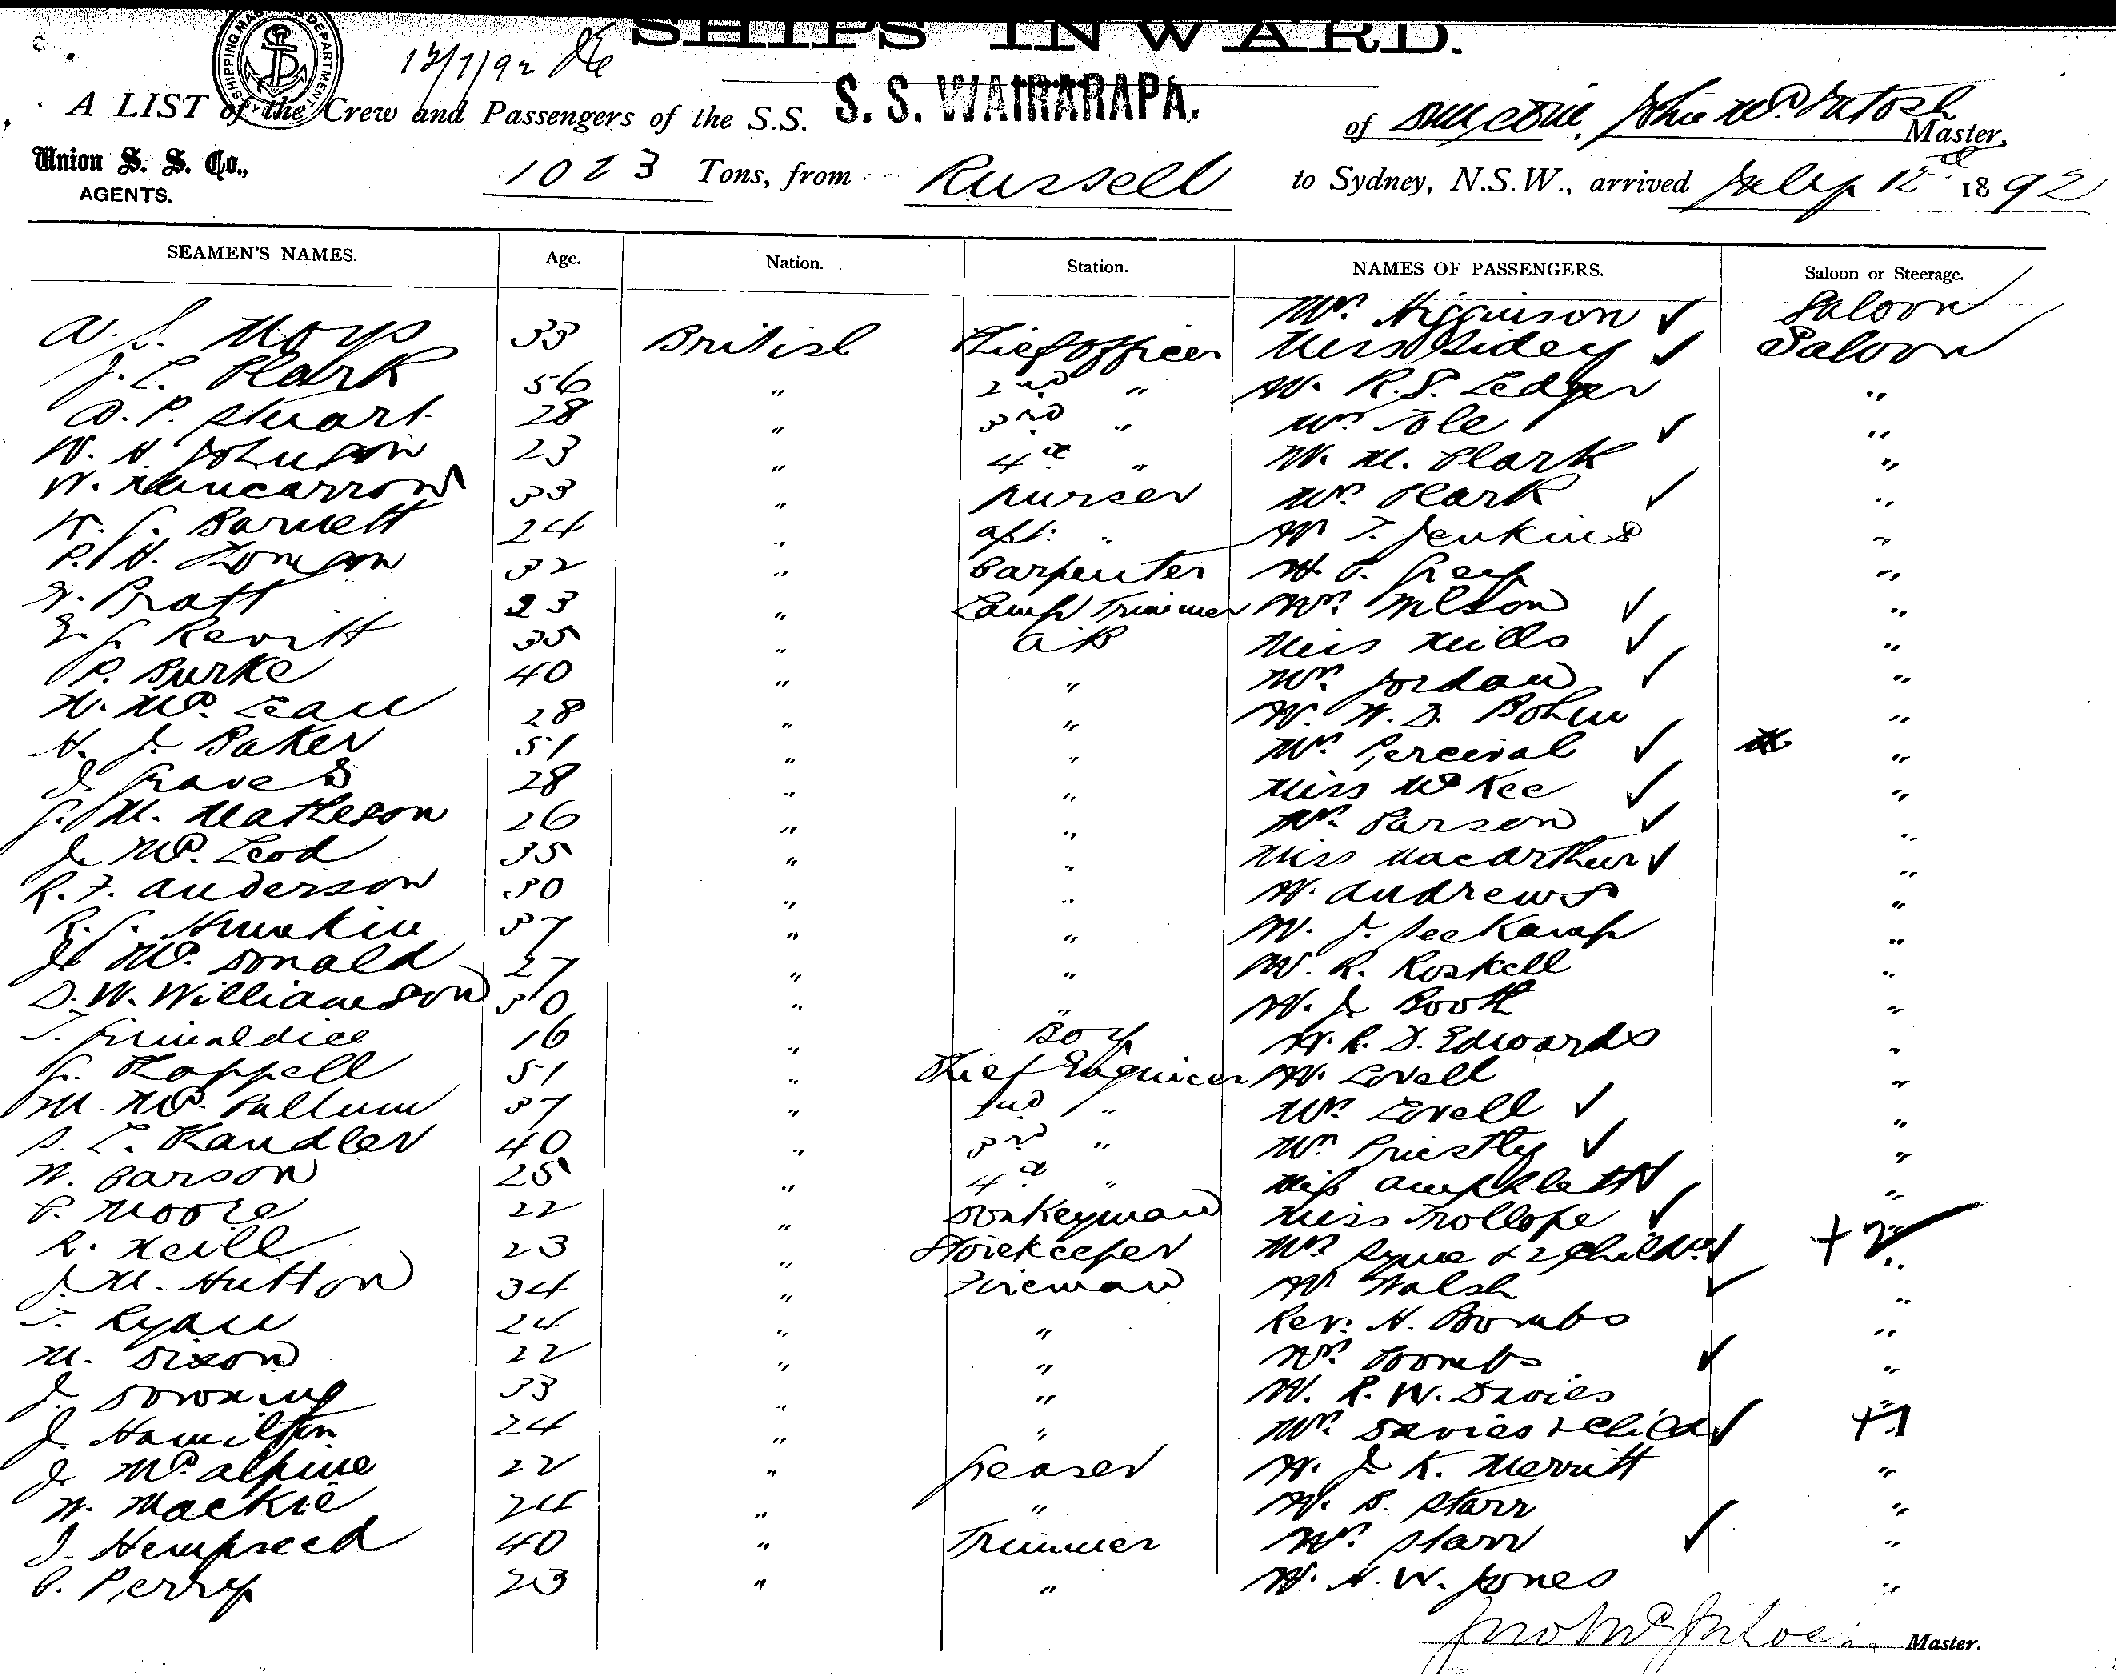 SHIPS INWARD.
SHIPPING MASTER'S DEPARTMENT
13/7/92
S. S. WAIRARAPA.
A LIST of the Crew and Passengers of the S.S. of Dunedin, John McIntosh Master,
Union S. S. Co.,
AGENTS.
1023 Tons, from Russell to Sydney, N.S.W., arrived July 12th 1892
SEAMEN'S NAMES. Age. Nation. Station. NAMES OF PASSENGERS. Saloon or Steerage.
Mrs. Higginson ✓ Saloon
A. S. Moys 33 British Chief Officer Miss Sidey ✓ Saloon
J. E. Clark 56 " 2nd " Mr. R. S. Ledger "
D. P. Stuart 28 " 3rd " Mrs Tole ✓ "
W. H. Johnson 23 " 4th " Mr. M. Clark "
W. Nancarrow 33 " purser Mrs Clark ✓ "
W. G. Barnett 24 " asst: " Mr T. Jenkins "
P. H. 32 " Carpenter Mr. C. Grey "
W. Pratt 23 " Lamp Trimmer Mrs. Wilson ✓ "
E. G. Revitt 35 " AB Miss Mills ✓ "
P. Burke 40 " " Mrs. Jordan ✓ "
N. McLean 28 " " Mr. W. D. Bohm "
H. J. Baker 51 " " Mrs. Percival ✓ "
J. Graves 28 " " Miss McKee ✓ "
G. M. Matheson 26 " " Mrs. Carson ✓ "
J. McLeod 35 " " Miss Macarthur ✓ "
R. F. Anderson 30 " " Mr. Andrews "
R. G. 37 " " Mr. J. Seekamp "
J. McDonald 27 " " Mr. R. Roskell "
D. W. Williamson 30 " " Mr. J. Booth "
T. Grimaldice 16 " Boy Mr. R. D. Edwards "
G. Chappell 51 " Chief Engineer Mr. Lovell "
M. McCallum 37 " 2nd " Mrs Lovell ✓ "
S. E. Chandler 40 " 3rd " Mrs Priestly ✓ "
W. Carson 25 " 4th " Miss Amphlett ✓ "
C. Moore 22 " Donkeyman Miss Trollope ✓ "
R. Neill 23 " Storekeeper Mrs Syme & 2 Children ✓ + 2 "
J. M. Hutton 34 " Fireman Mr Walsh ✓ "
T. Ryan 24 " " Rev: H. Coombs "
M. Dixon 22 " " Mrs. Coombs ✓ "
J. Downing 33 " " Mr. R. W. Davies "
J. Hamilton 24 " " Mrs. Davies & Child ✓ +1
J. McAlpine 22 " Greaser Mr. J. K. Merritt "
W. Mackie 24 " " Mr. C. Starr "
J. Hempseed 40 " Trimmer Mrs. Starr ✓ "
C. Perry 23 " " Mr. H. W. Jones "
Jno McIntosh Master.